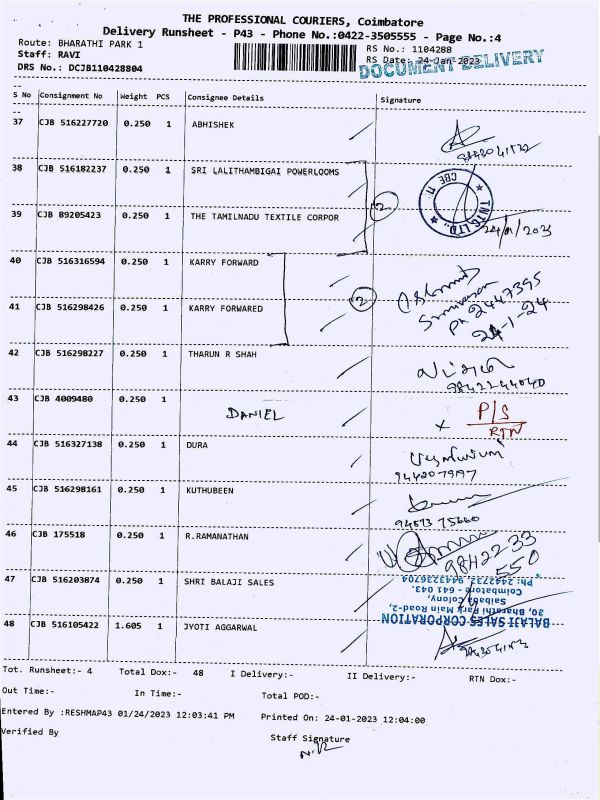 THE PROFESSIONAL COURIERS, Coimbatore
Delivery Runsheet - P43 - Phone No.:0422-3505555 - Page No.:4
Route: BHARATHI PARK 1
RS No.: 1104288
Staff: RAVI
RS Date: 24-Jan-2023
DRS No.: DCJB110428804
DOCUMENT DELIVERY
S No Consignment No Weight PCS Consignee Details Signature
37 CJB 516227720 0.250 1 ABHISHEK
38 CJB 516182237 0.250 1 SRI LALITHAMBIGAI POWERLOOMS
2
39 CJB 89205423 0.250 1 THE TAMILNADU TEXTILE CORPOR
24/01/2023
40 CJB 516316594 0.250 1 KARRY FORWARD
2
41 CJB 516298426 0.250 1 KARRY FORWARED
Ph 2447395
24-1-24
42 CJB 516298227 0.250 1 THARUN R SHAH
43 CJB 4009480 0.250 1 DANIEL
P/S
RTN
44 CJB 516327138 0.250 1 DURA
9442079197
45 CJB 516298161 0.250 1 KUTHUBEEN
46 CJB 175518 0.250 1 R.RAMANATHAN
98422 33
550
47 CJB 516203874 0.250 1 SHRI BALAJI SALES
BALAJI SALES CORPORATION
30, Bharathi Park Main Road-2,
Saibaba Colony,
Coimbatore - 641 043.
48 CJB 516105422 1.605 1 JYOTI AGGARWAL
Tot. Runsheet:- 4 Total Dox:- 48 I Delivery:- II Delivery:- RTN Dox:-
Out Time:- In Time:- Total POD:-
Entered By :RESHMAP43 01/24/2023 12:03:41 PM Printed On: 24-01-2023 12:04:00
Verified By Staff Signature